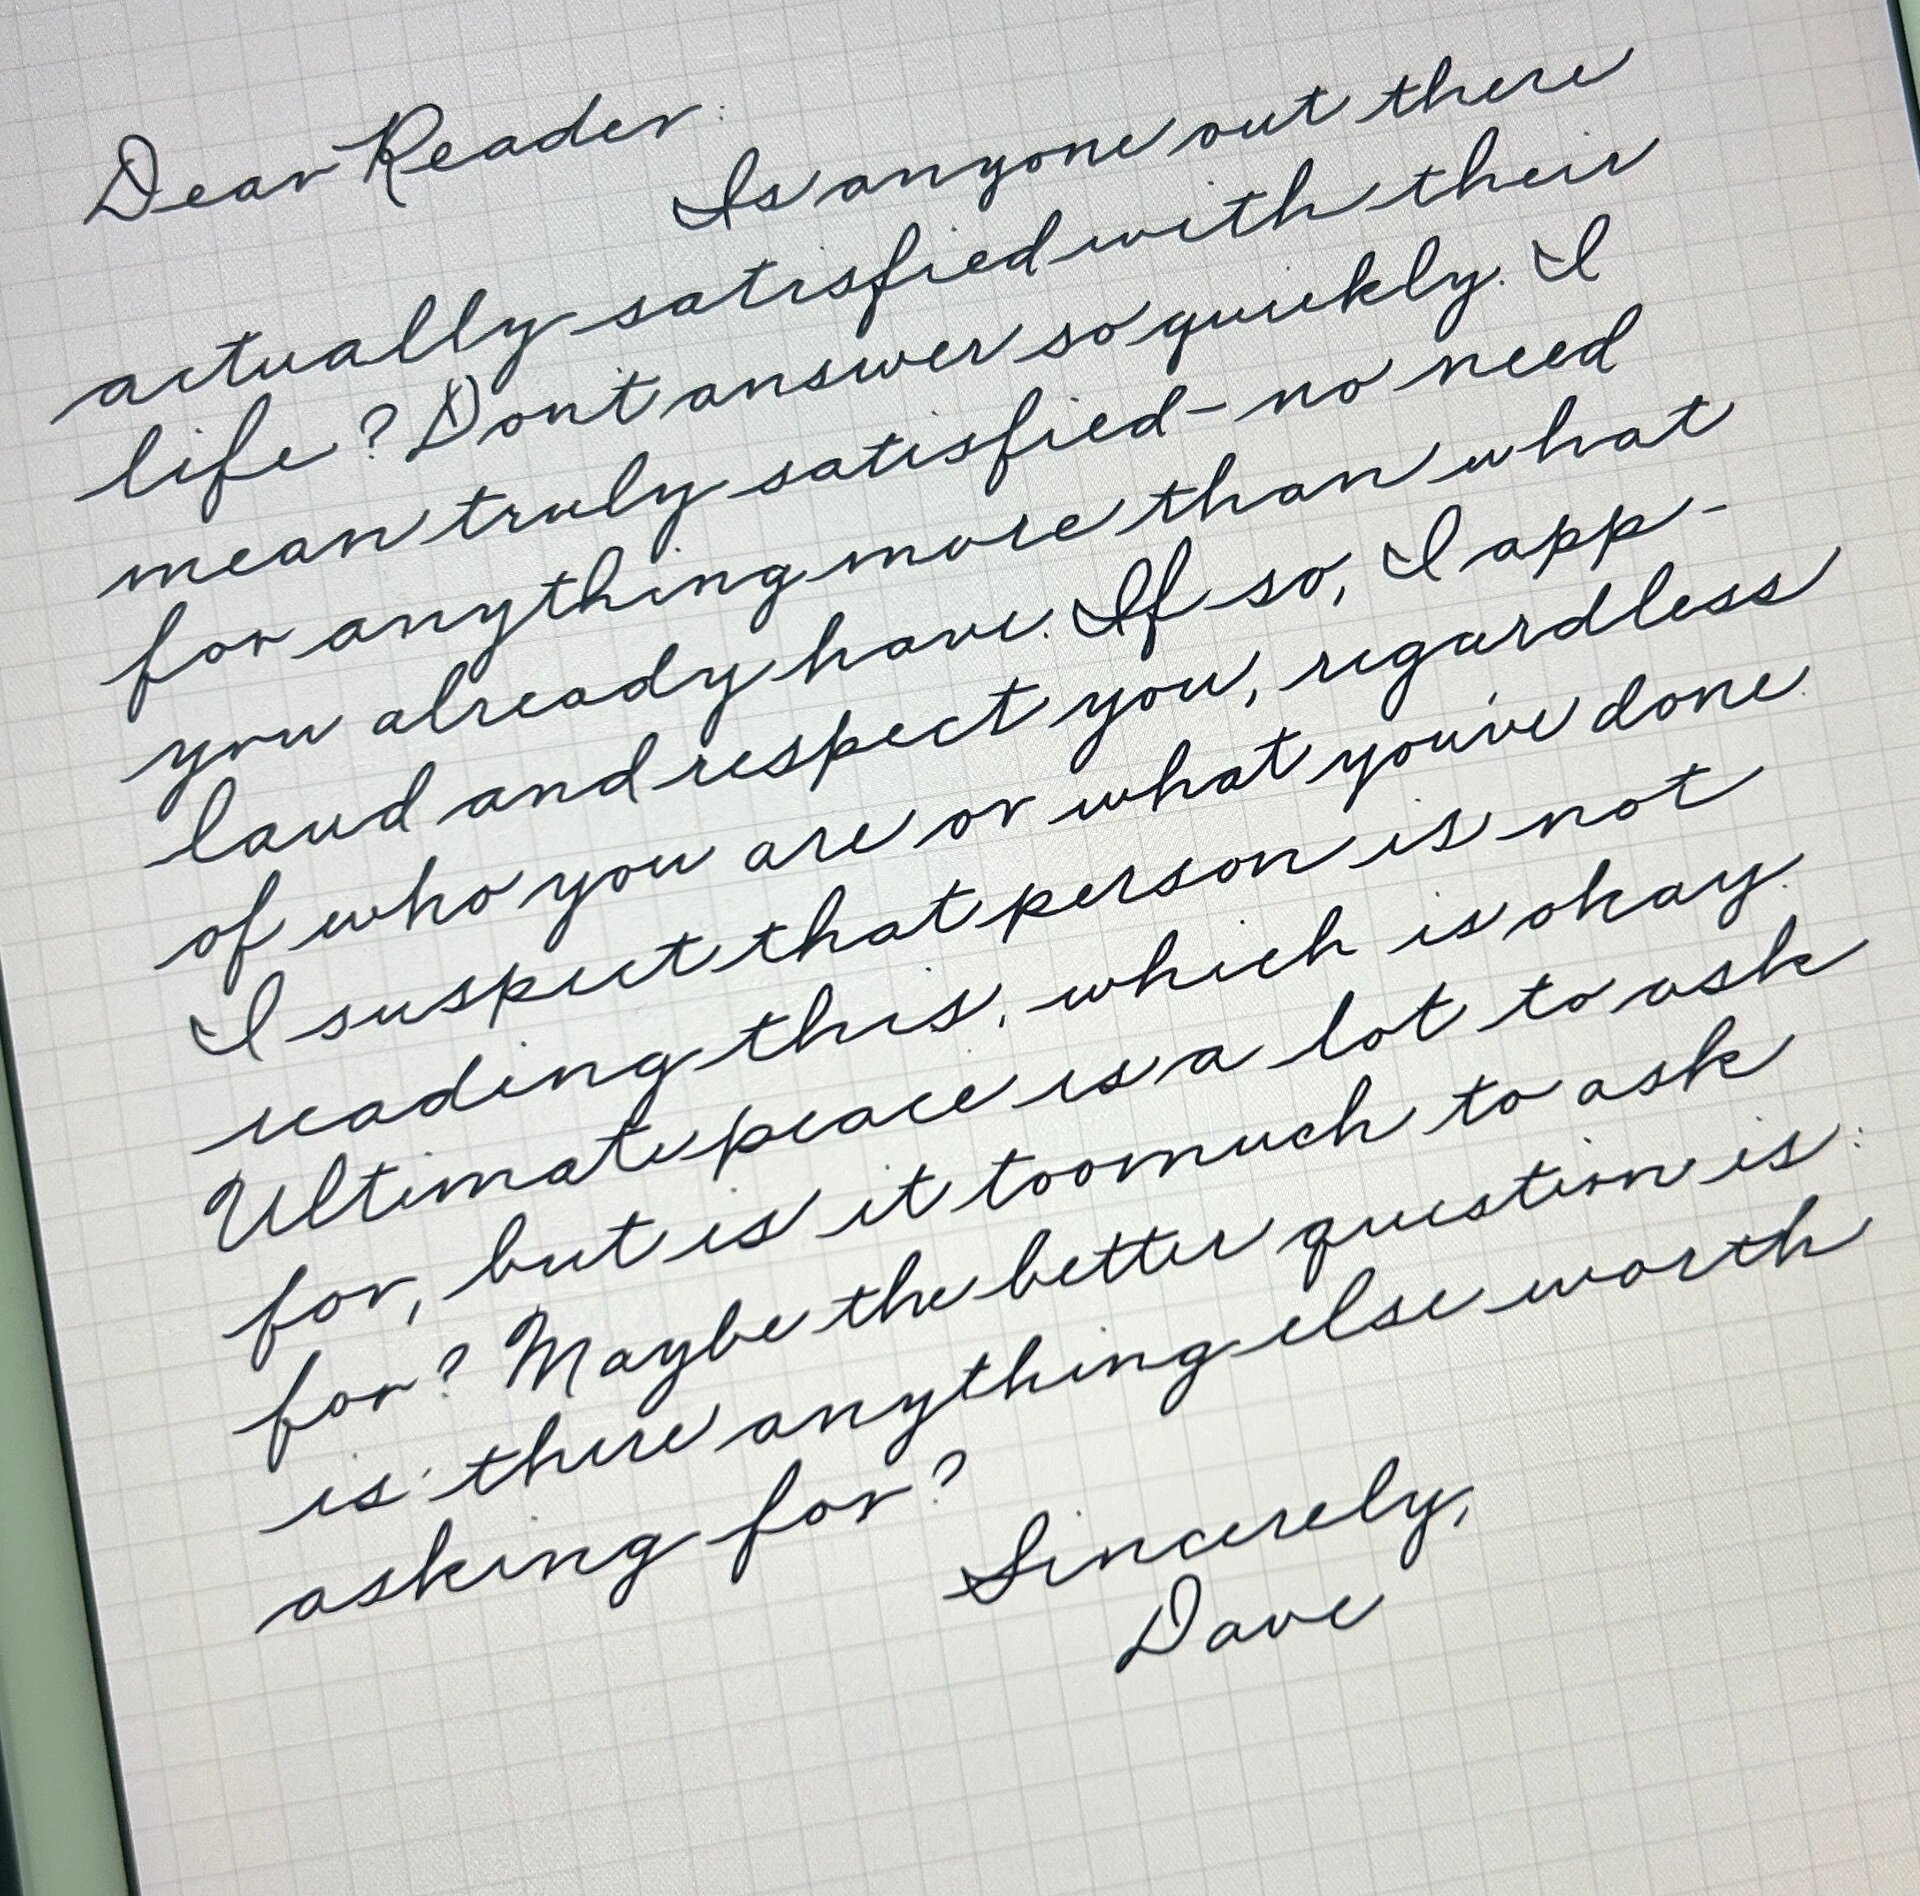 Dear Reader:
Is anyone out there
actually satisfied with their
life? Don't answer so quickly. I
mean truly satisfied - no need
for anything more than what
you already have. If so, I app-
laud and respect you, regardless
of who you are or what you've done.
I suspect that person is not
reading this, which is okay.
Ultimate peace is a lot to ask
for, but is it too much to ask
for? Maybe the better question is:
is there anything else worth
asking for?
Sincerely,
Dave